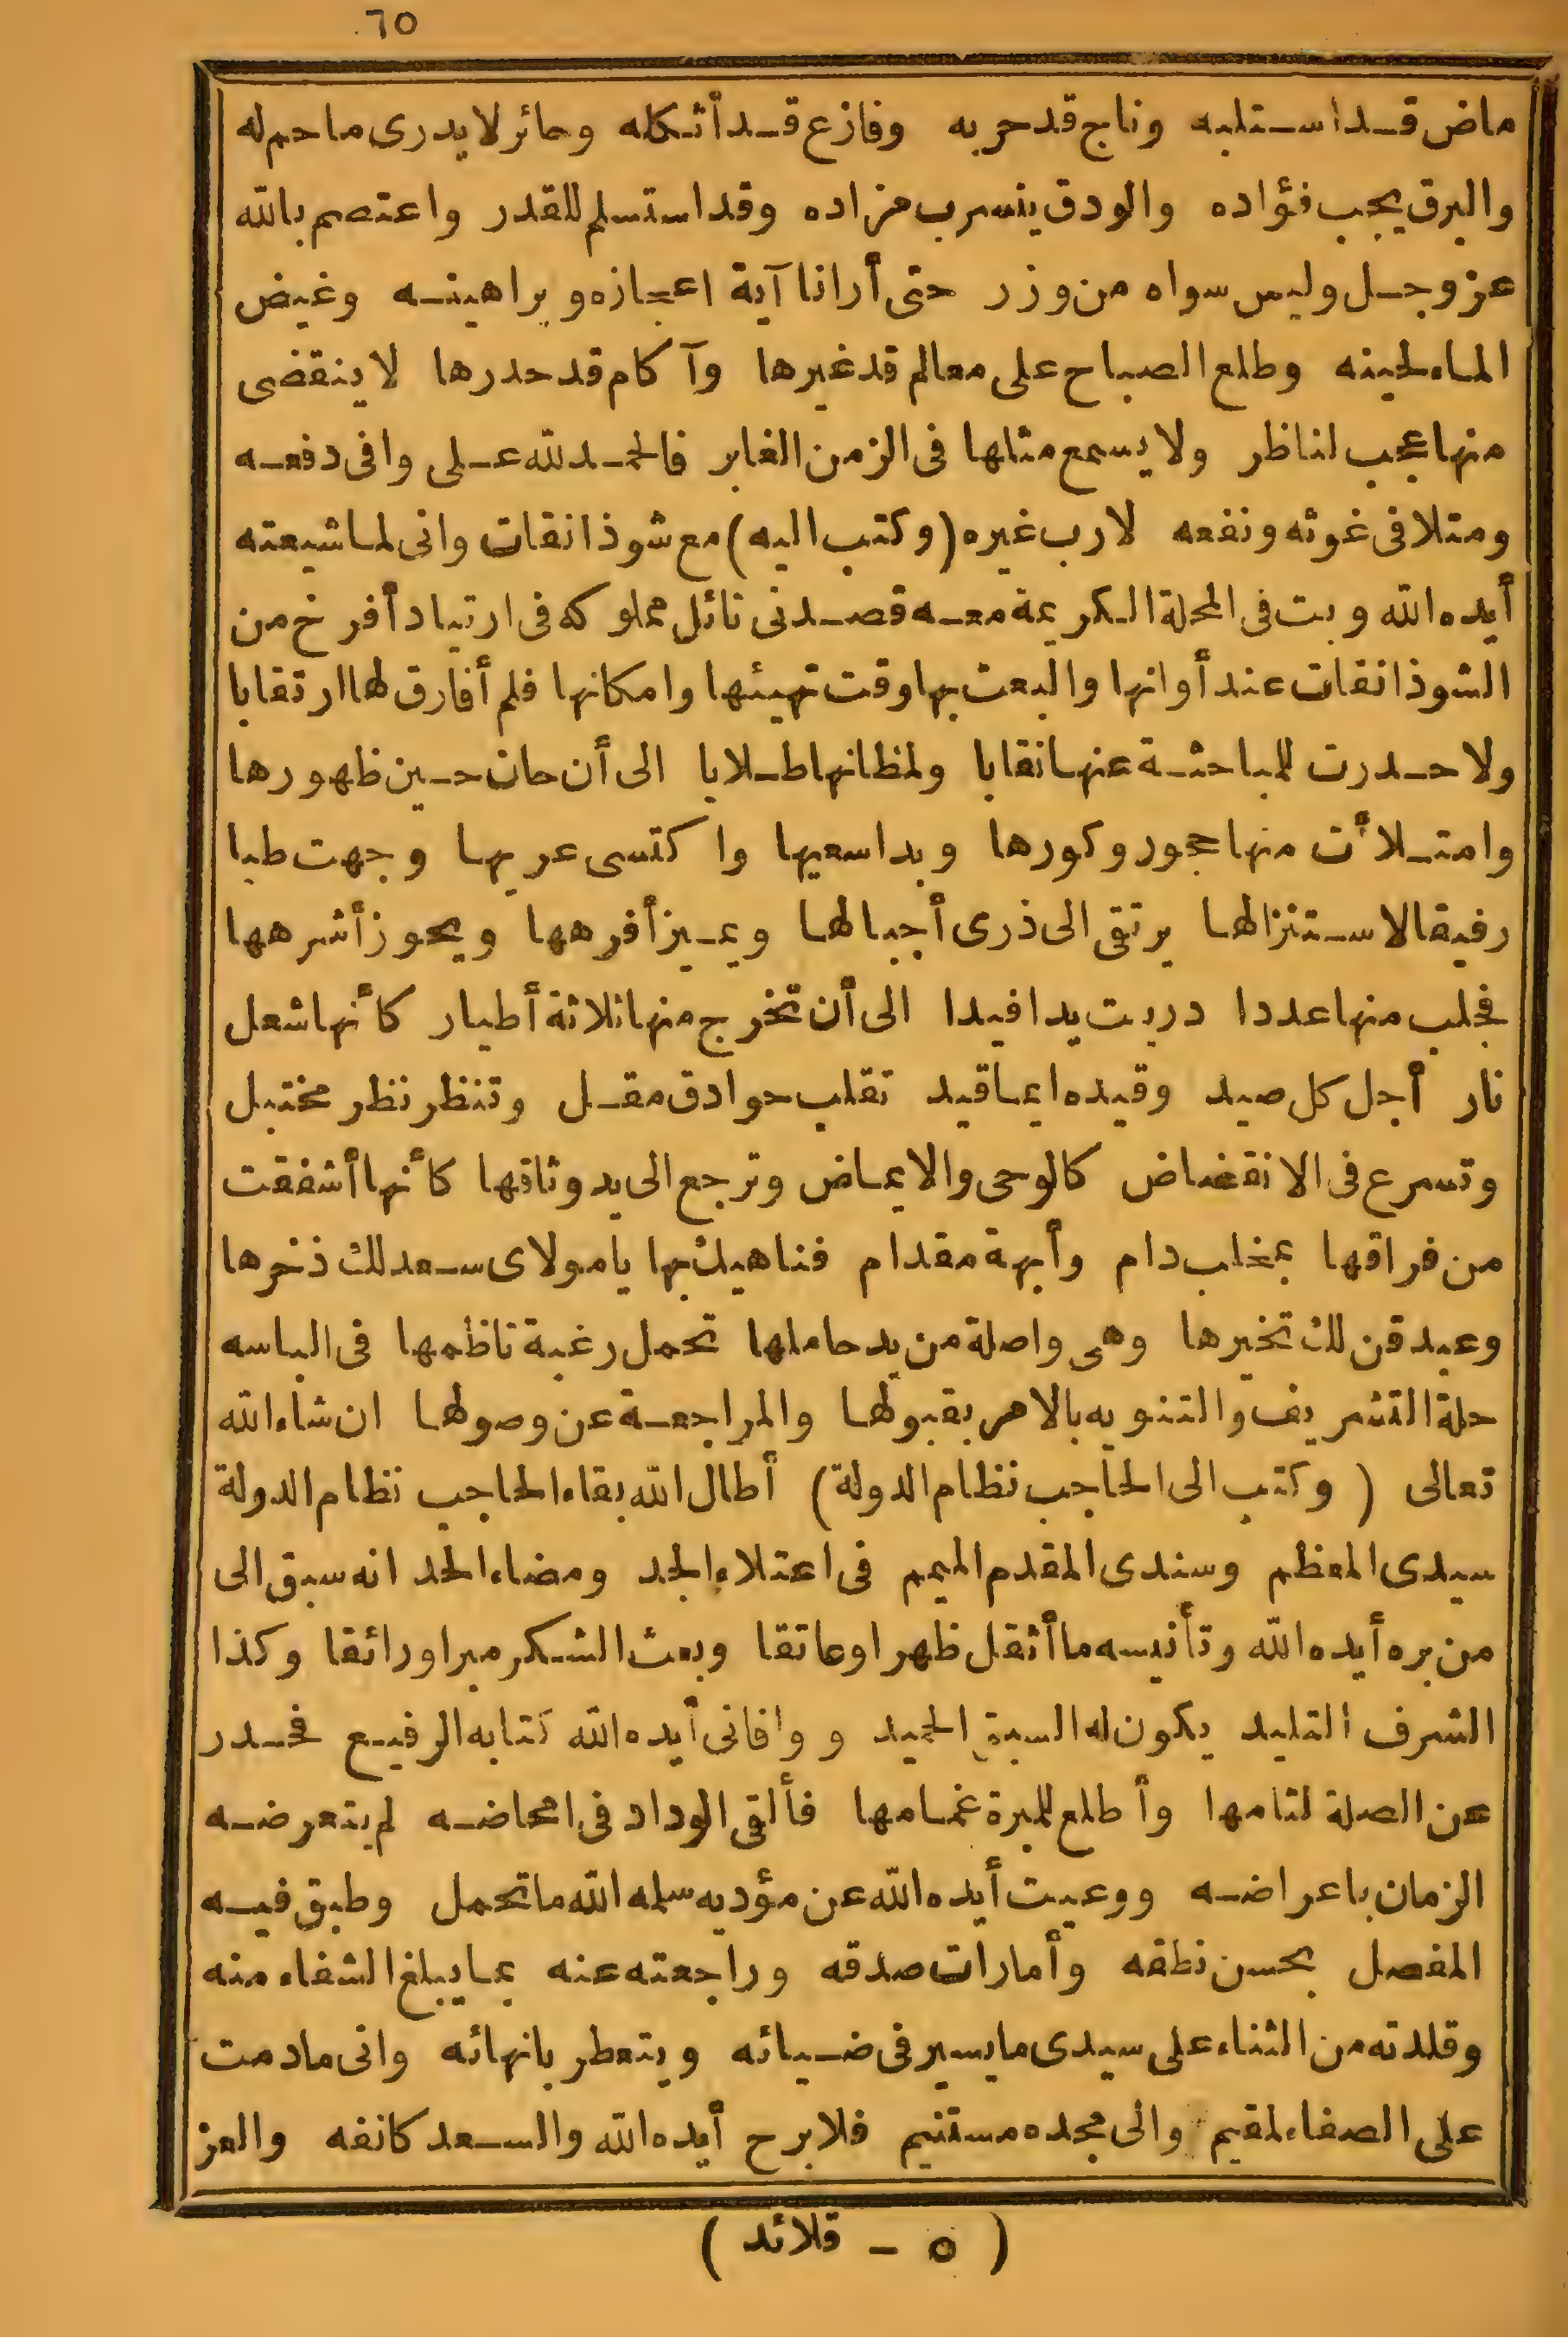 ٦٥
ماض قد استلبه وناج قد حربه وفازع قد أثكله وحائر لا يدرى ما حم له
والبرق يجب فؤاده والودق ينسرب مزاده وقد استسلم للقدر واعتصم بالله
عز وجل وليس سواه من وزر حتى أرانا آية اعجازه وبراهينه وغيض
الماء لحينه وطلع الصباح على معالم قد غيرها وآكام قد حدرها لا ينقضى
منها عجب لناظر ولا يسمع مثلها فى الزمن الغابر فالحمد لله على وافى دفعه
ومتلافى غوثه ونفعه لا رب غيره (وكتب اليه) مع شوذانقات وانى لما شيعته
أيده الله وبت فى المحلة الكريمة معه قصدنى نائل مملوكه فى ارتياد أفرخ من
الشوذانقات عند أوانها والبعث بها وقت تهيئها وامكانها فلم أفارق لها ارتقابا
ولا حدرت للمباحثة عنها نقابا ولمظانها طلابا الى أن حان حين ظهورها
وامتلأت منها حجور وكورها وبدا سعيها واكتسى عريها وجهت طبا
رفيقا لاستنزالها يرتقى الى ذرى أجبالها ويميز أفرهها ويحوز أشرهها
فجلب منها عددا دربت يدا فيدا الى أن تخرج منها ثلاثة أطيار كأنها شعل
نار أجل كل صيد وقيده ايما قيد تقلب حوادق مقل وتنظر نظر مختبل
وتسرع فى الانقضاض كالوحى والايماض وترجع الى يد وثاقها كأنها أشفقت
من فراقها بمخلب دام وأبهة مقدام فناهيك بها يا مولاى سعد لك ذخرها
وعبد قن لك تخيرها وهى واصلة من يد حاملها تحمل رغبة ناظمها فى الباسه
حلة التشريف والتنويه بالامر بقبولها والمراجعة عن وصولها ان شاء الله
تعالى (وكتب الى الحاجب نظام الدولة) أطال الله بقاء الحاجب نظام الدولة
سيدى المعظم وسندى المقدم الميمم فى اعتلاء الجد ومضاء الحد انه سبق الى
من بره أيده الله وتأنيسه ما أثقل ظهرا وعاتقا وبعث الشكر مبرا ورائقا وكذا
الشرف التليد يكون له السبق الحميد ووافانى أيده الله كتابه الرفيع فحدر
عن الصلة لثامها وأطلع للمبرة غمامها فألقى الوداد فى امحاضه لم يتعرضه
الزمان باعراضه ووعيت أيده الله عن مؤديه سلمه الله ما تحمل وطبق فيه
المفصل بحسن نطقه وأمارات صدقه وراجعته عنه بما يبلغ الشفاء منه
وقلدته من الثناء على سيدى ما يسير فى ضيائه ويتعطر بانهائه وانى ما دمت
على الصفاء لمقيم والى مجده مستنيم فلا برح أيده الله والسعد كانفه والعز
( ٥ - قلائد )